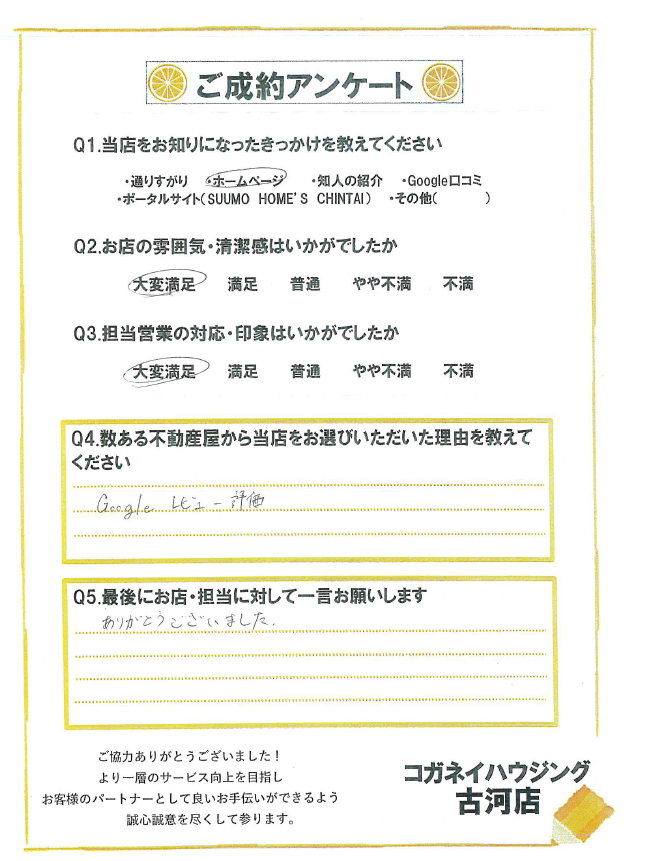 ご成約アンケート
Q1.当店をお知りになったきっかけを教えてください
・通りすがり ・ホームページ ・知人の紹介 ・Google口コミ
・ポータルサイト(SUUMO HOME'S CHINTAI) ・その他( )
Q2.お店の雰囲気・清潔感はいかがでしたか
大変満足 満足 普通 やや不満 不満
Q3.担当営業の対応・印象はいかがでしたか
大変満足 満足 普通 やや不満 不満
Q4.数ある不動産屋から当店をお選びいただいた理由を教えて
ください
Google レビュー評価
Q5.最後にお店・担当に対して一言お願いします
ありがとうございました.
ご協力ありがとうございました!
より一層のサービス向上を目指し
お客様のパートナーとして良いお手伝いができるよう
誠心誠意を尽くして参ります。
コガネイハウジング
古河店